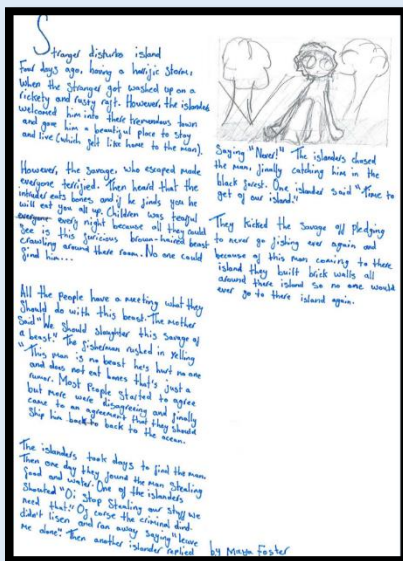 Stranger disturbs island
Four days ago, having a horific storm,
when the stranger got washed up on a
rickety and rusty raft. However, the islanders
welcomed him into there tremendous town
and gave him a beautiful place to stay
and live (which felt like home to the man).
However, the savage, who escaped made
everyone terrified. Then heard that the
intruder eats bones and if he finds you he
will eat you all up. Children was tearful
every night because all they could
see is this furicious brown-haired beast
crawling around there room. No one could
find him...
All the people have a meeting what they
should do with this beast. The mother
said "We should slaughter this savage of
a beast." The fisherman rushed in yelling
"This man is no beast he's hurt no one
and does not eat bones that's just a
rumor. Most People started to agree
but more were disagreeing and finally
came to an agreement that they should
Ship him back to back to the ocean.
The islanders took days to find the man.
Then one day they found the man stealing
food and water. One of the islanders
shouted "Oi stop stealing our stuff we
need that." Of corse the criminal dind-
didn't lisen and ran away saying "leave
me alone". Then another islander replied
Saying "Never!" The islanders chased
the man, finally catching him in the
black forest. One islander said "Time to
get of our island."
They kicked the savage off Pledging
to never go fishing ever again and
because of this man coming to there
island they built brick walls all
around there island so no one would
ever go to there island again.
by Maya Foster